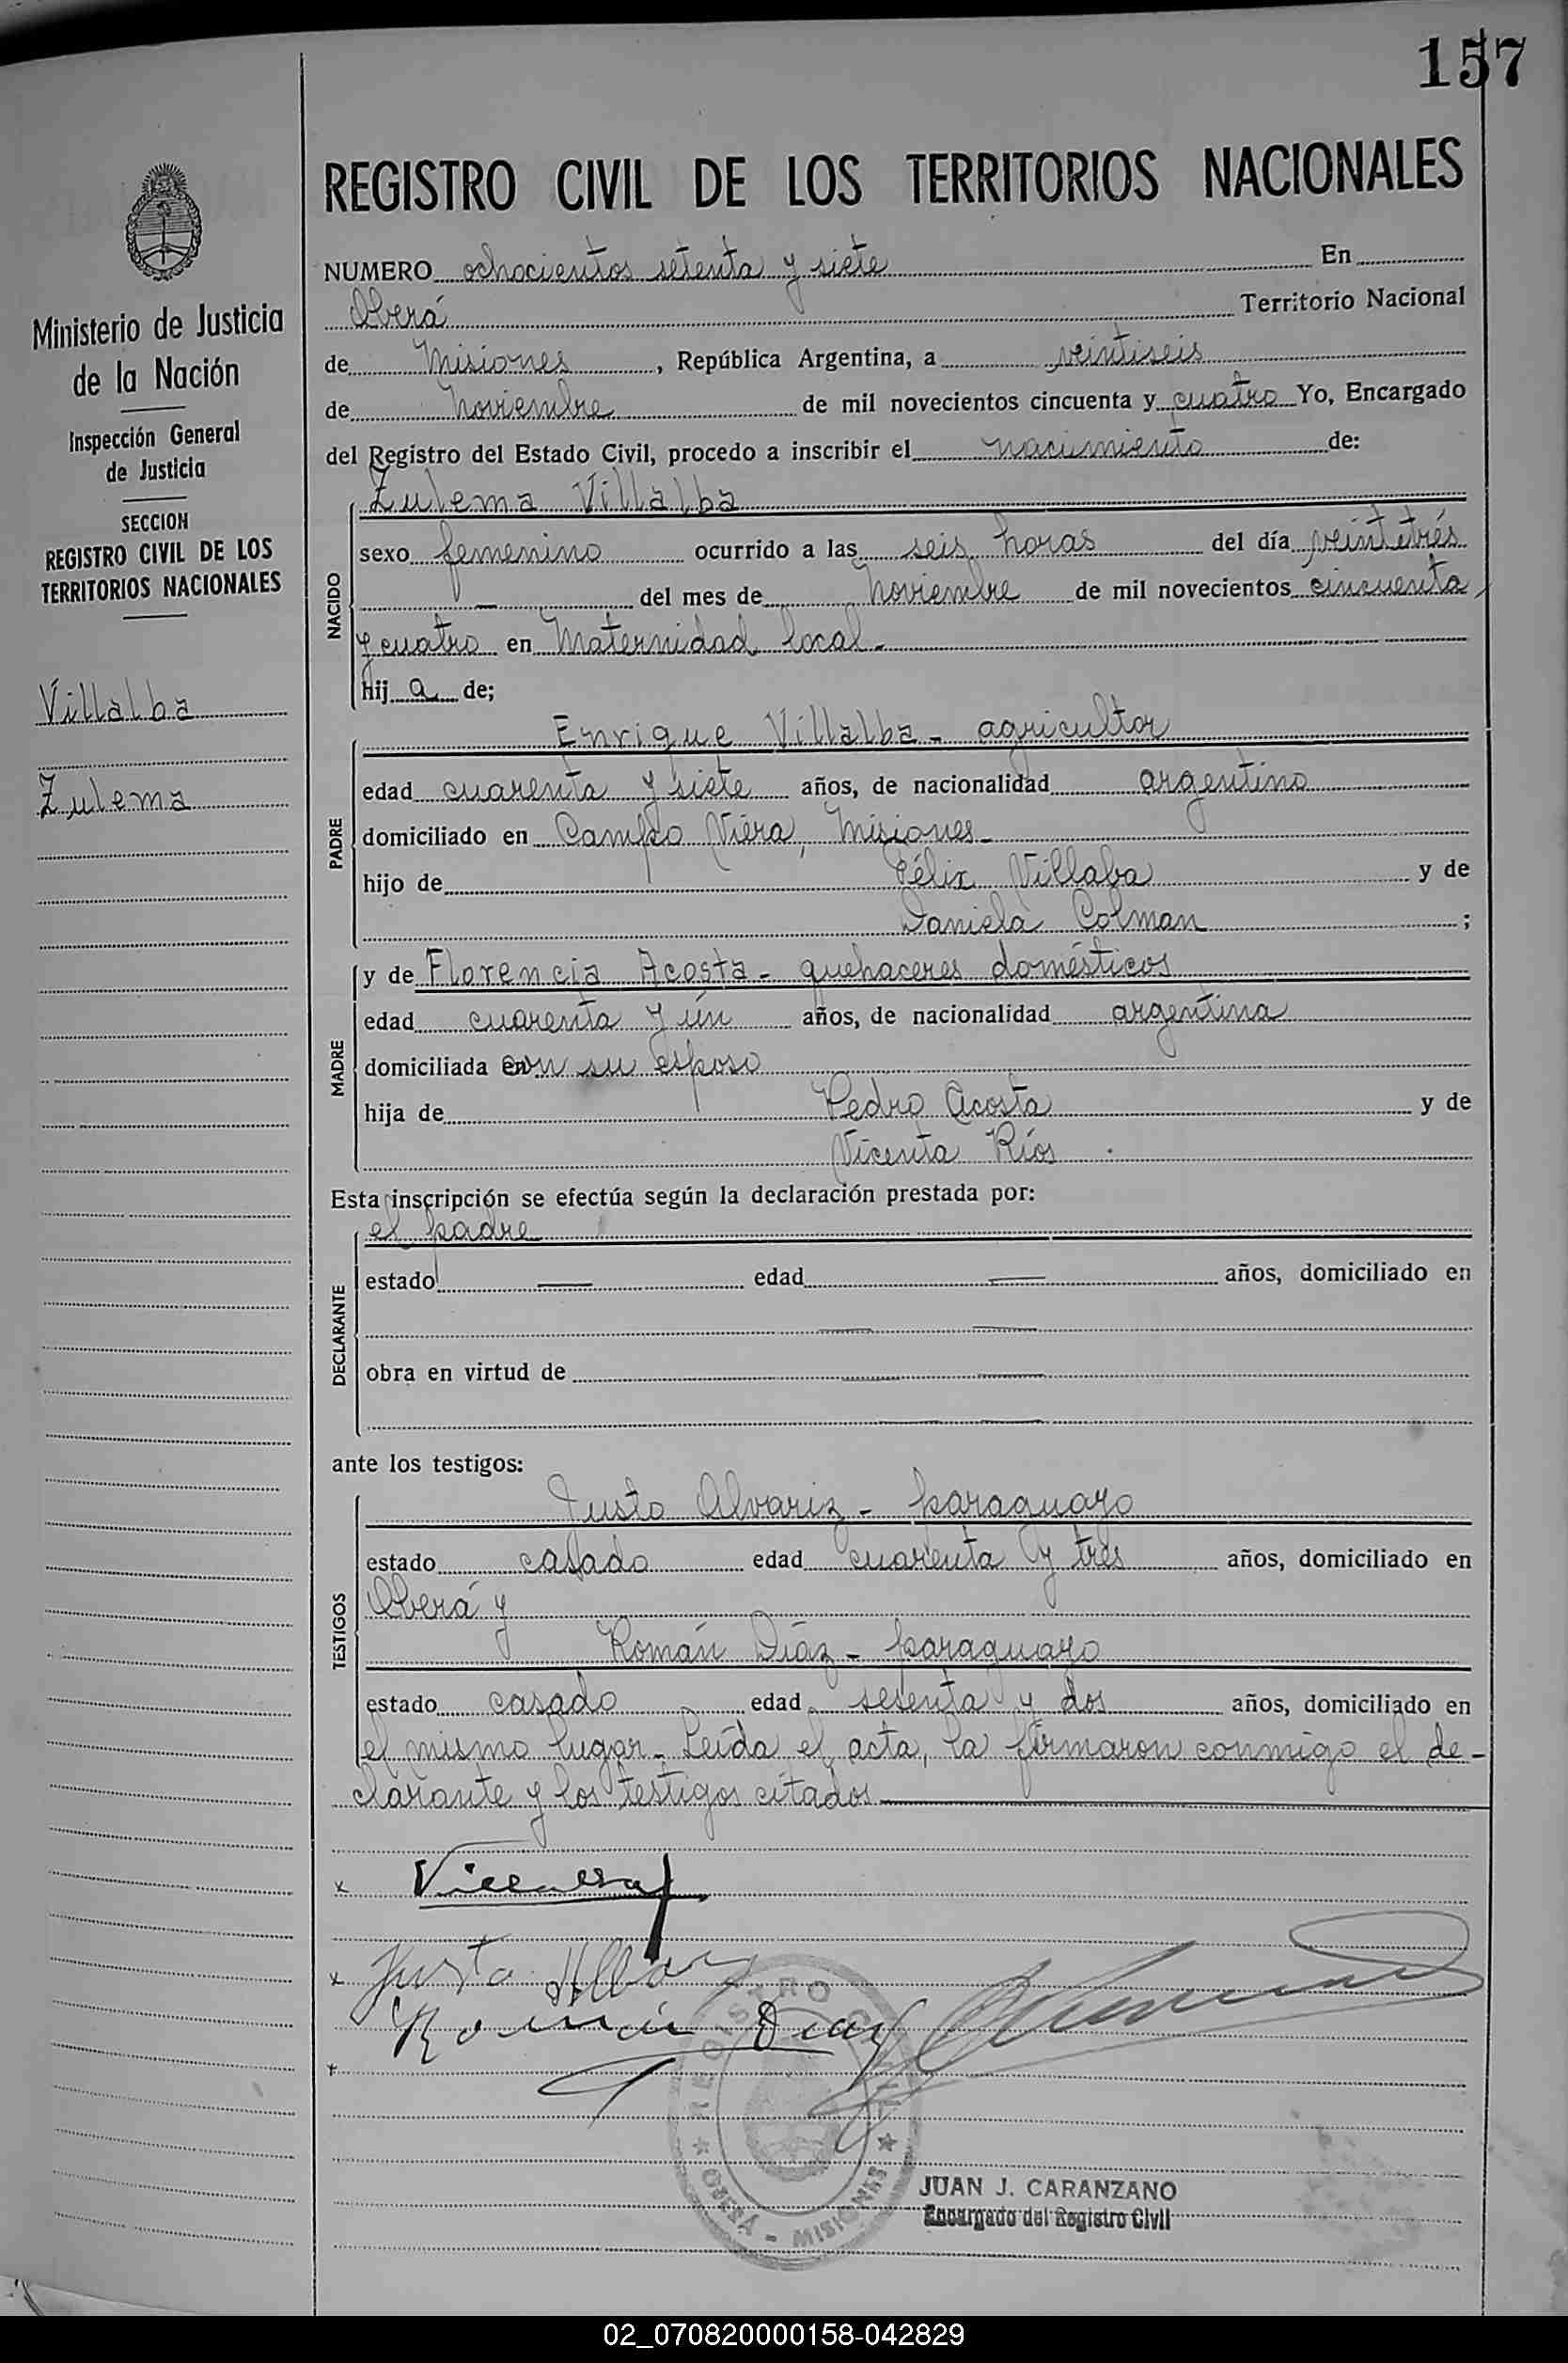 157
Ministerio de Justicia
de la Nación
Inspección General
de Justicia
SECCION
REGISTRO CIVIL DE LOS
TERRITORIOS NACIONALES
Villalba
Zulema
REGISTRO CIVIL DE LOS TERRITORIOS NACIONALES
NUMERO ochocientos setenta y siete En
Oberá Territorio Nacional
de Misiones, República Argentina, a veintiseis
de Noviembre de mil novecientos cincuenta y cuatro Yo, Encargado
del Registro del Estado Civil, procedo a inscribir el nacimiento de:
NACIDO
Zulema Villalba
sexo femenino ocurrido a las seis horas del día veintetrés
— del mes de Noviembre de mil novecientos cincuenta
y cuatro en Maternidad local.-
hij a de;
PADRE
Enrique Villalba - agricultor
edad cuarenta y siete años, de nacionalidad argentino
domiciliado en Campo Viera, Misiones-
hijo de Félix Villaba y de
Daniela Colman ;
MADRE
y de Florencia Acosta - quehaceres domésticos
edad cuarenta y ún años, de nacionalidad argentina
domiciliada con su esposo
hija de Pedro Acosta y de
Vicenta Ríos .
Esta inscripción se efectúa según la declaración prestada por:
DECLARANTE
el padre
estado — edad — años, domiciliado en
— —
obra en virtud de — —
— —
ante los testigos:
TESTIGOS
Justo Alvariz - paraguayo
estado casado edad cuarenta y trés años, domiciliado en
Oberá y
Román Díaz - paraguayo
estado casado edad sesenta y dos años, domiciliado en
el mismo lugar- Leída el acta, la firmaron conmigo el de-
clarante y los testigos citados
x Villalba
x Justo
Román Diaz
x
REGISTRO CIVIL
★ OBERÁ - MISIONES ★
JUAN J. CARANZANO
Encargado del Registro Civil
02_070820000158-042829